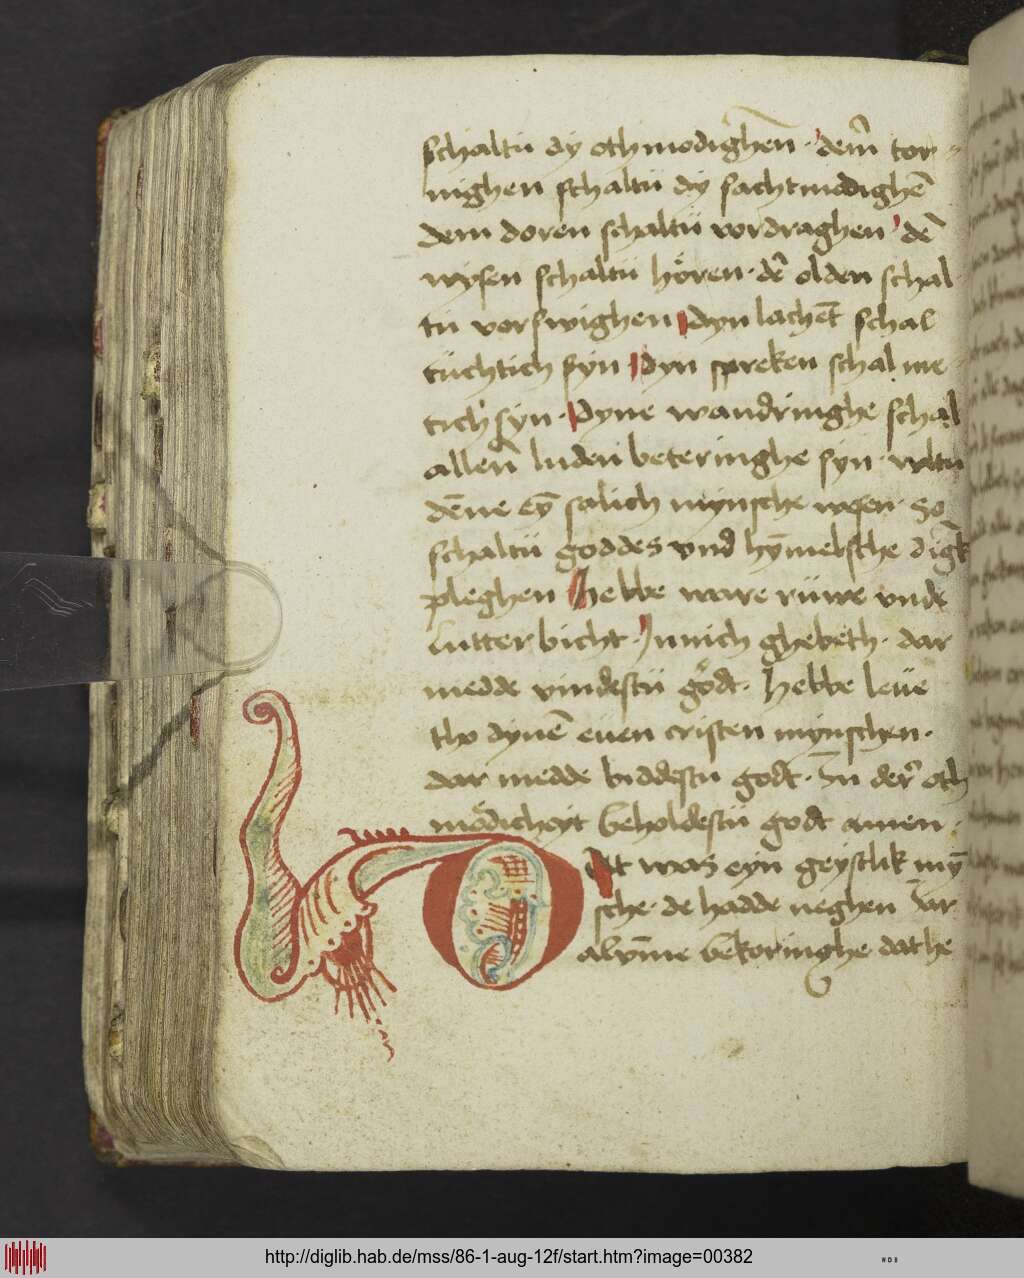 schaltu dy othmodighen · dem̄ tor
nighen schaltu dy sachtmodighē
dem doren schaltu vordraghen dē
wysen schaltu hören · dē olden schal
tu vorswighen dyn lachēt schal
tuchtich syn dyn spreken schal me
tich syn · dyne wandringhe schal
allen luden beteringhe syn · wltu
dēne eȳ salich mynsche wesen · So
schaltu goddes vnd hȳmelsche dīgk
pleghen Hebbe ware ruwe vnde
lutter bicht · Jnnich ghebeth · dar
medde vindestu gödt · Hebbe leue
tho dynē euen cristen mynschen ·
dar medde biddestu godt · In der oth
mödicheyt beholdestu godt amen ·
Dit was eyn geystlik mȳ
sche · de hadde neghen Iar
alvmme bekoringhe dat he
http://diglib.hab.de/mss/86-1-aug-12f/start.htm?image=00382